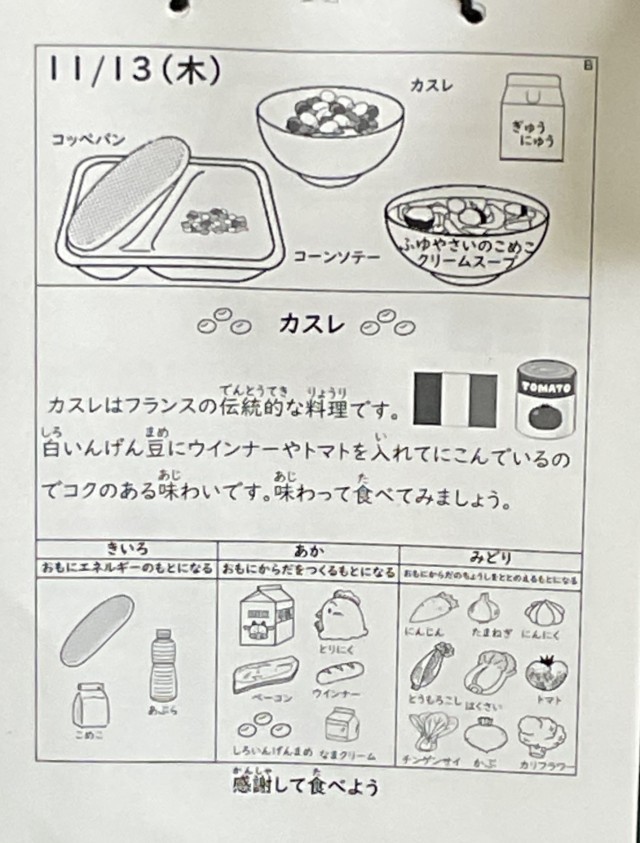 11/13(木)
カスレ
コッペパン
ぎゅう
にゅう
ふゆやさいのこめこ
クリームスープ
コーンソテー
カスレ
カスレはフランスの伝統的な料理です。
でんとうてき りょうり
TOMATO
白いんげん豆にウインナーやトマトを入れてにこんでいるの
しろ まめ い
でコクのある味わいです。味わって食べてみましょう。
あじ あじ た
きいろ あか みどり
おもにエネルギーのもとになる おもにからだをつくるもとになる おもにからだのちょうしをととのえるもとになる
とりにく
にんじん たまねぎ にんにく
こめこ あぶら
ベーコン ウインナー
とうもろこし はくさい トマト
しろいんげんまめ なまクリーム
チンゲンサイ かぶ カリフラワー
かんしゃ た
感謝して食べよう